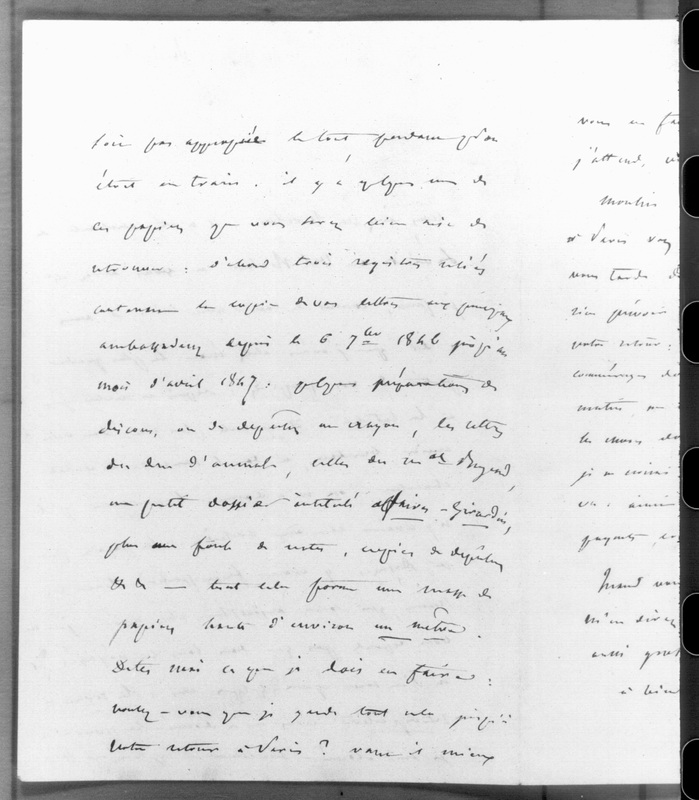 pas appropriés le tout pendant qu'on
était en train. il y a quelques uns de
ces papiers que vous serez bien aise de
retrouver : d'abord trois registres reliés
contenant la copie de vos lettres aux
ambassadeurs depuis le 6 7bre 1846 jusqu'au
mois d'avril 1847 : quelques préparations de
discours, ou de dépêches au crayon, les lettres
du duc d'aumale, celles du mal Bugeaud,
un petit dossier intitulé affaires - Girardin,
plus une foule de notes, copies de dépêches
&c &c — tout cela forme une masse de
papiers haute d'environ un mètre.
Dites moi ce que je dois en faire :
voulez-vous que je garde tout cela jusqu'à
votre retour à Paris ? vaut il mieux
vous en fai
j'attend,
moulin
à Paris vou
vous tarde d
rien prévoir
votre retour :
commérages
matin,
les choses
je
Quand vou
m'en direz
aussi
à bien